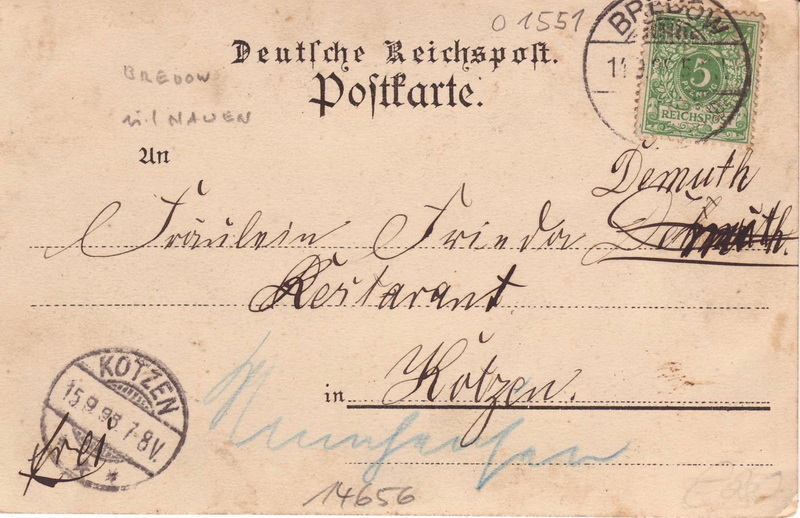 O 1551
BREDOW
5
REICHSPOST
Deutsche Reichspost.
Postkarte.
BREDOW
NAUEN
An
Demuth
Fräulein Frieda
Restarant
in Kötzen.
KOTZEN
15.9.98 7-8V.
frei
14656